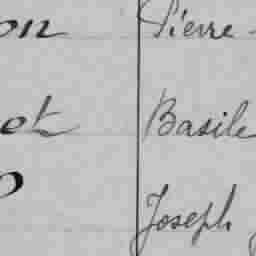 on Pierre
et Basile
Joseph